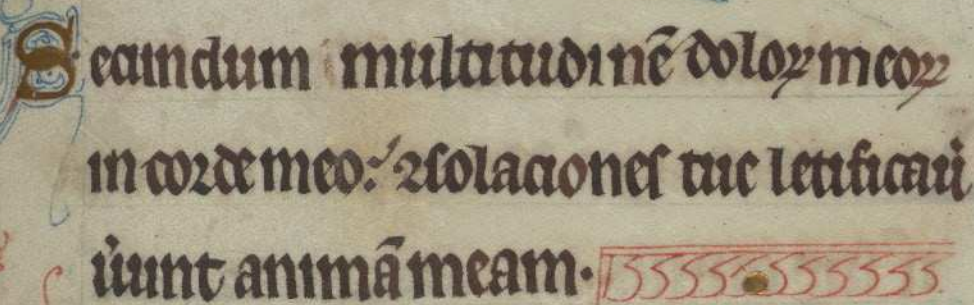 Secundum multitudinē doloꝝ meoꝝ
in corde meo: ꝯsolaciones tue letificau̓
u̓unt animā meam.